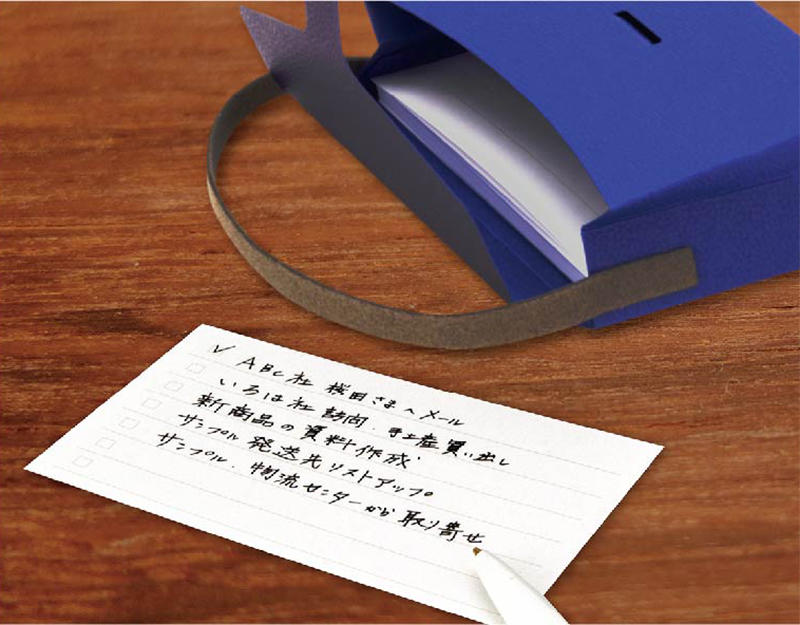 ✓ ABC社 桜田さまへメール
いろは社訪問、手土産買い出し
新商品の資料作成
サンプル発送先リストアップ
サンプル、物流センターから取り寄せ